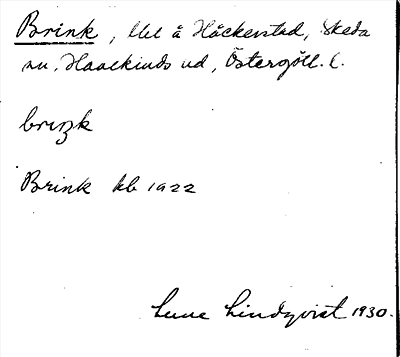 Brink, lht å Håckerstad, Skeda
sn, Hanekinds hd, Östergötl. l.
briŋk
Brink kb 1922
Sune Lindqvist 1930.